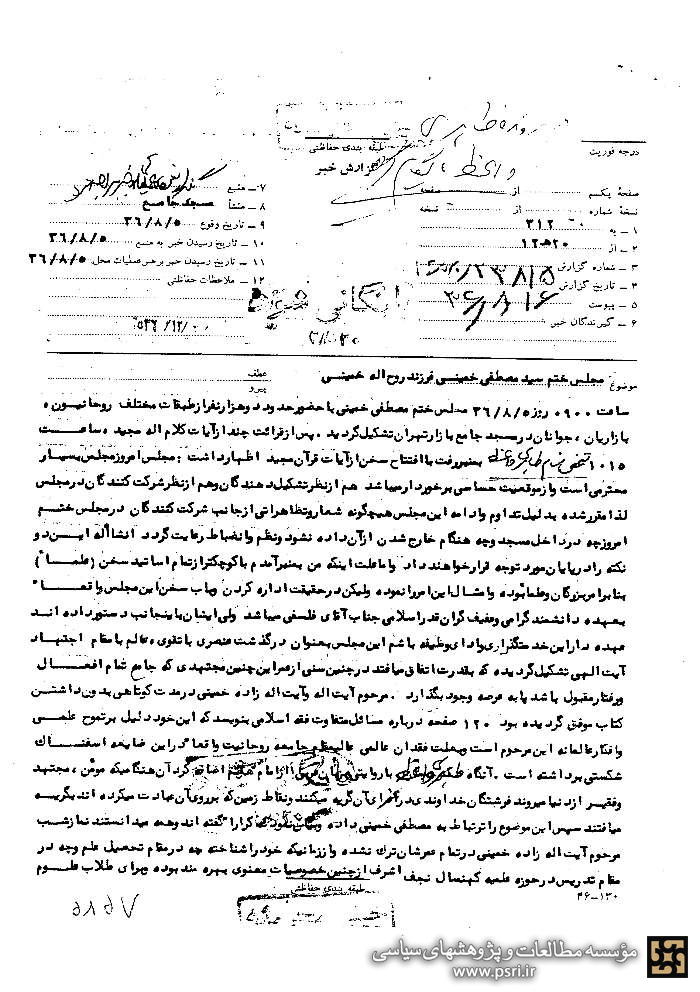 طبقه بندی حفاظتی
درجه فوریت
گزارش خبر
صفحه یکم از صفحه
نسخه شماره از نسخه
۱ – به ۳۱۲
۲ – از ۲۰ه۱۲
۳ – شماره گزارش
۴ – تاریخ گزارش ۳۶/۸/۶
۵ – پیوست
۶ – گیرندگان خبر
۷ – منبع
۸ – منشأ مسجد جامع
۹ – تاریخ وقوع ۳۶/۸/۵
۱۰ – تاریخ رسیدن خبر به منبع ۳۶/۸/۵
۱۱ – تاریخ رسیدن خبر برهبر عملیات محل ۳۶/۸/۵
۱۲ – ملاحظات حفاظتی
بایگانی شود
موضوع مجلس ختم سید مصطفی خمینی فرزند روح اله خمینی
عطف
پیرو
ساعت ۰۹۰۰ روز ۳۶/۸/۵ مجلس ختم مصطفی خمینی با حضور حدود دو هزار نفر از طبقات مختلف روحانیون ،
بازاریان ، جوانان در مسجد جامع بازار تهران تشکیل گردید . پس از قرائت چند از آیات کلام اله مجید ، ساعت
۱۰۱۵ شخصی بنام طاهری واعظ بمنبر رفت با افتتاح سخن از آیات قرآن مجید اظهار داشت : مجلس امروز مجلس بسیار
محترمی است و از موقعیت حساسی برخوردار میباشد هم از نظر تشکیل دهندگان و هم از نظر شرکت کنندگان در مجلس
لذا مقرر شده بدلیل تداوم و ادامه این مجلس هیچگونه شعار و تظاهراتی از جانب شرکت کنندگان در مجلس ختم
امروز چه در داخل مسجد و چه هنگام خارج شدن از آن داده نشود و نظم و انضباط رعایت گردد انشااله این دو
نکته را در پایان مورد توجه قرار خواهند داد و اما علت اینکه من بمنبر آمدم با کوچکتر از تمام اساتید سخن (علما)
بنا بر امر بزرگان و علما بوده و امتثال این امر را نموده ولیکن در حقیقت اداره کردن و باب سخن این مجلس واقعا"
بعهده دانشمند گرامی و مفید گران قدر اسلامی جناب آقای فلسفی میباشد ولی ایشان باینجانب دستور داده اند
عهده دار این خدمتگزاری و ادای وظیفه باشم این مجلس بعنوان درگذشت عنصری با تقوی ، عالم با مقام اجتهاد
آیت الهی تشکیل گردیده که بقدرت اتفاق میافتد در چنین سنی از عمر این چنین مجتهدی که جامع تمام افعال
و رفتار مقبول باشد پا به عرصه وجود بگذارد . مرحوم آیت اله و آیت اله زاده خمینی در مدت کوتاهی بدون داشتن
کتاب موفق گردیده بود ۱۲۰ صفحه درباره مسائل متفاوت فقه اسلامی بنویسد که این خود دلیل بر تموج علمی
و افکار عالمانه این مرحوم است و بعلت فقدان عالمی عالیمقام جامعه روحانیت واقعا" در این ضایعه اسفناک
شکستی برداشته است . آنگاه طاهری واعظ با روایتی از امام هفتم اضافه کرد آن هنگامیکه مؤمن ، مجتهد
و فقیر از دنیا میروند فرشتگان خداوندی در آن گریه میکنند و نقاط زمین که بر روی آن عبادت میکرده اند بگریه
میافتند سپس این موضوع را ارتباط به مصطفی خمینی داده و کرارا" گفته اند و همه میدانستند نماز شب
مرحوم آیت اله زاده خمینی در تمام عمرشان ترک نشده و از زمانیکه خود را شناخته چه در مقام تحصیل علم و چه در
مقام تدریس در حوزه علمیه کهنسال نجف اشرف از چنین خصوصیات معنوی بهره مند بوده و برای طلاب علوم
طبقه بندی حفاظتی
۴۶–۱۳۰
مؤسسه مطالعات و پژوهشهای سیاسی
www.psri.ir